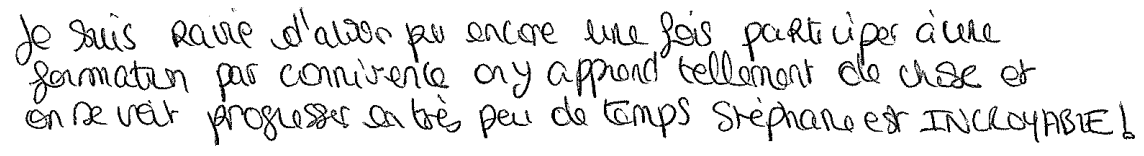 Je suis Ravie d'avoir pu encore une fois participer à une
formation par connivence on y apprend tellement de chose et
on se voit progresser en très peu de temps Stéphane est INCROYABLE !